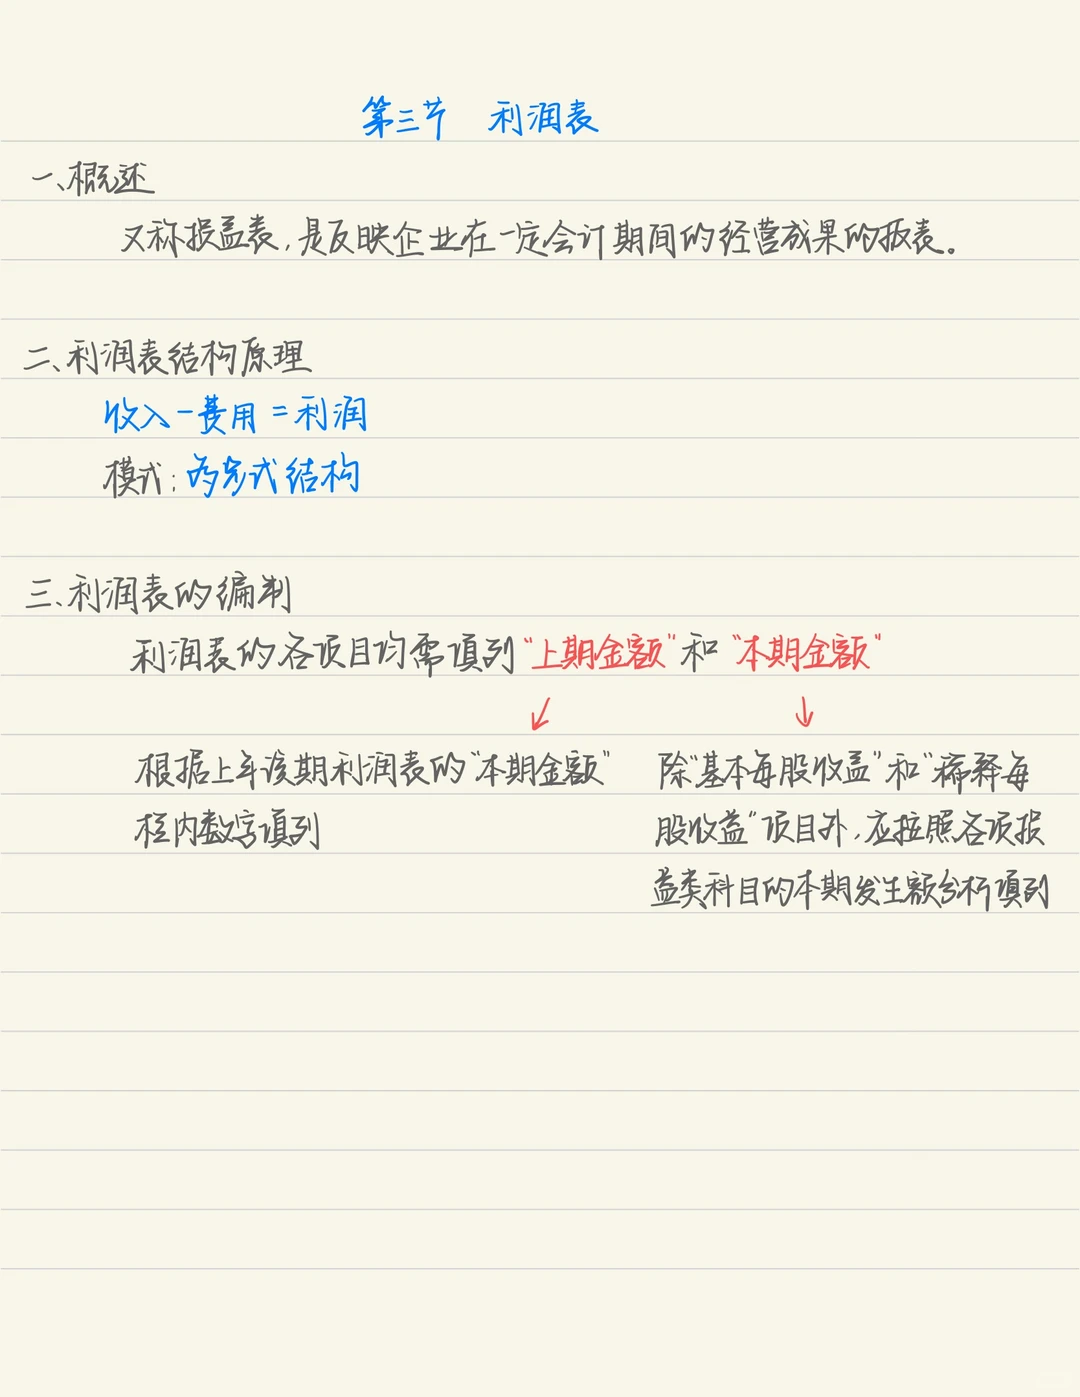 第三节 利润表
一、概述
又称损益表,是反映企业在一定会计期间的经营成果的报表。
二、利润表结构原理
收入-费用=利润
模式:多步式结构
三、利润表的编制
利润表的各项目均需填列“上期金额”和“本期金额”
↙ ↓
根据上年该期利润表的“本期金额”
栏内数字填列
除“基本每股收益”和“稀释每
股收益”项目外,应按照各项损
益类科目的本期发生额分析填列